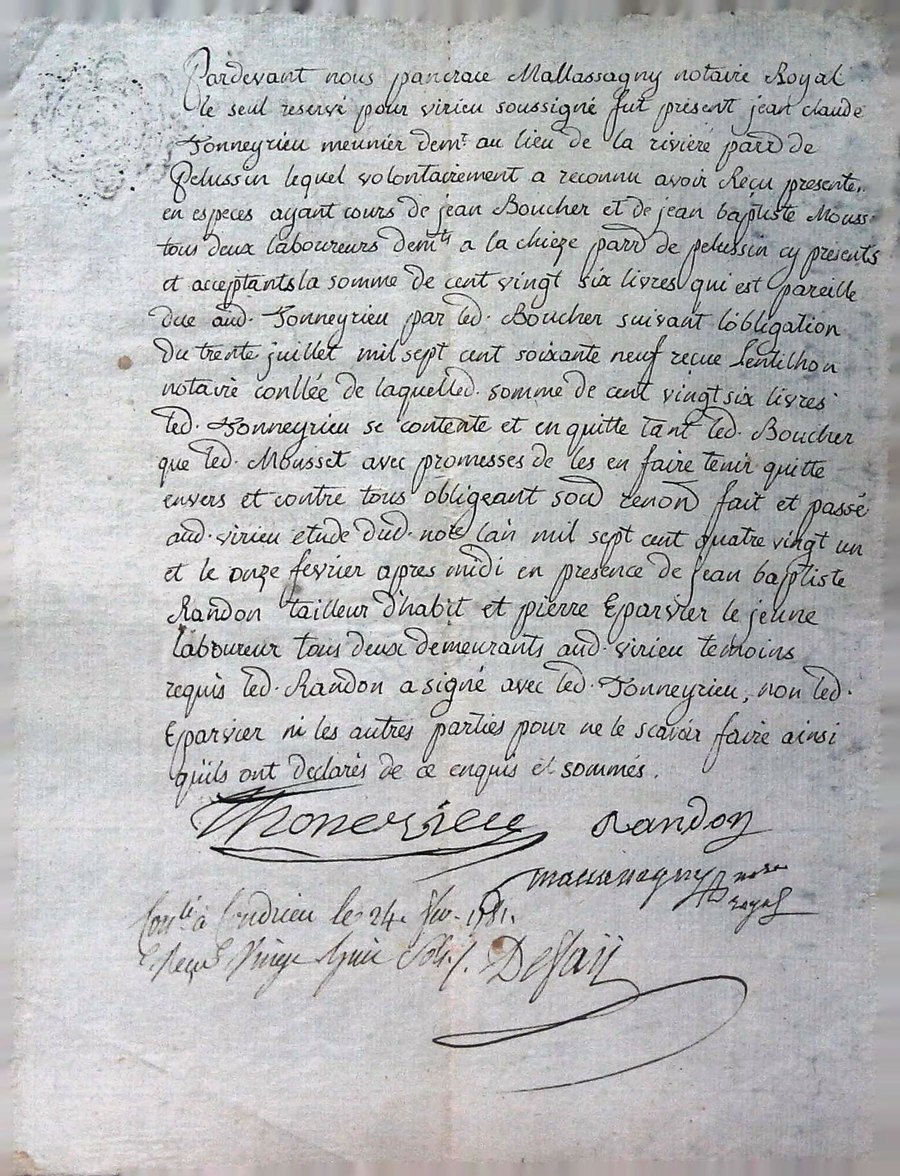 Pardevant nous pancrace Mallassagny notaire Royal
le seul reservé pour virieu soussigné fut présent jean claude
Tonneyrieu meunier demt. au lieu de la riviere parr de
Pelussin lequel volontairement a reconnu avoir Reçu presentem.
en especes ayant cours de jean Boucher et de jean baptiste Mouss
tous deux laboureurs demts a la chieze parr de pelussin cy présents
et acceptants la somme de cent vingt six livres qui est pareille
due aud. Tonneyrieu par led. Boucher suivant l'obligation
du trente juillet mil sept cent soixante neuf reçue Lentilhon
notaire conllée de laquelled. somme de cent vingt six livres
led. Tonneyrieu se contente et en quitte tant led. Boucher
que led. Mousset avec promesses de les en faire tenir quitte
envers et contre tous obligeant soud renond fait et passé
aud. virieu etude dud. nore l'an mil sept cent quatre vingt un
et le onze février apres midi en présence de jean baptiste
Randon tailleur d'habit et pierre Eparvier le jeune
laboureur tous deux demeurants aud. virieu temoins
requis led. Randon a signé avec led. Tonneyrieu, non led.
Eparvier ni les autres parties pour ne le scavoir faire ainsi
qu'ils ont declarés de ce enquis et sommés.
Thonerieu Randon
mallassagny nore
royal
Conlé à Condrieu le 24 fév. 1781.
Reçu Vingt huit Sols /. Dessaij